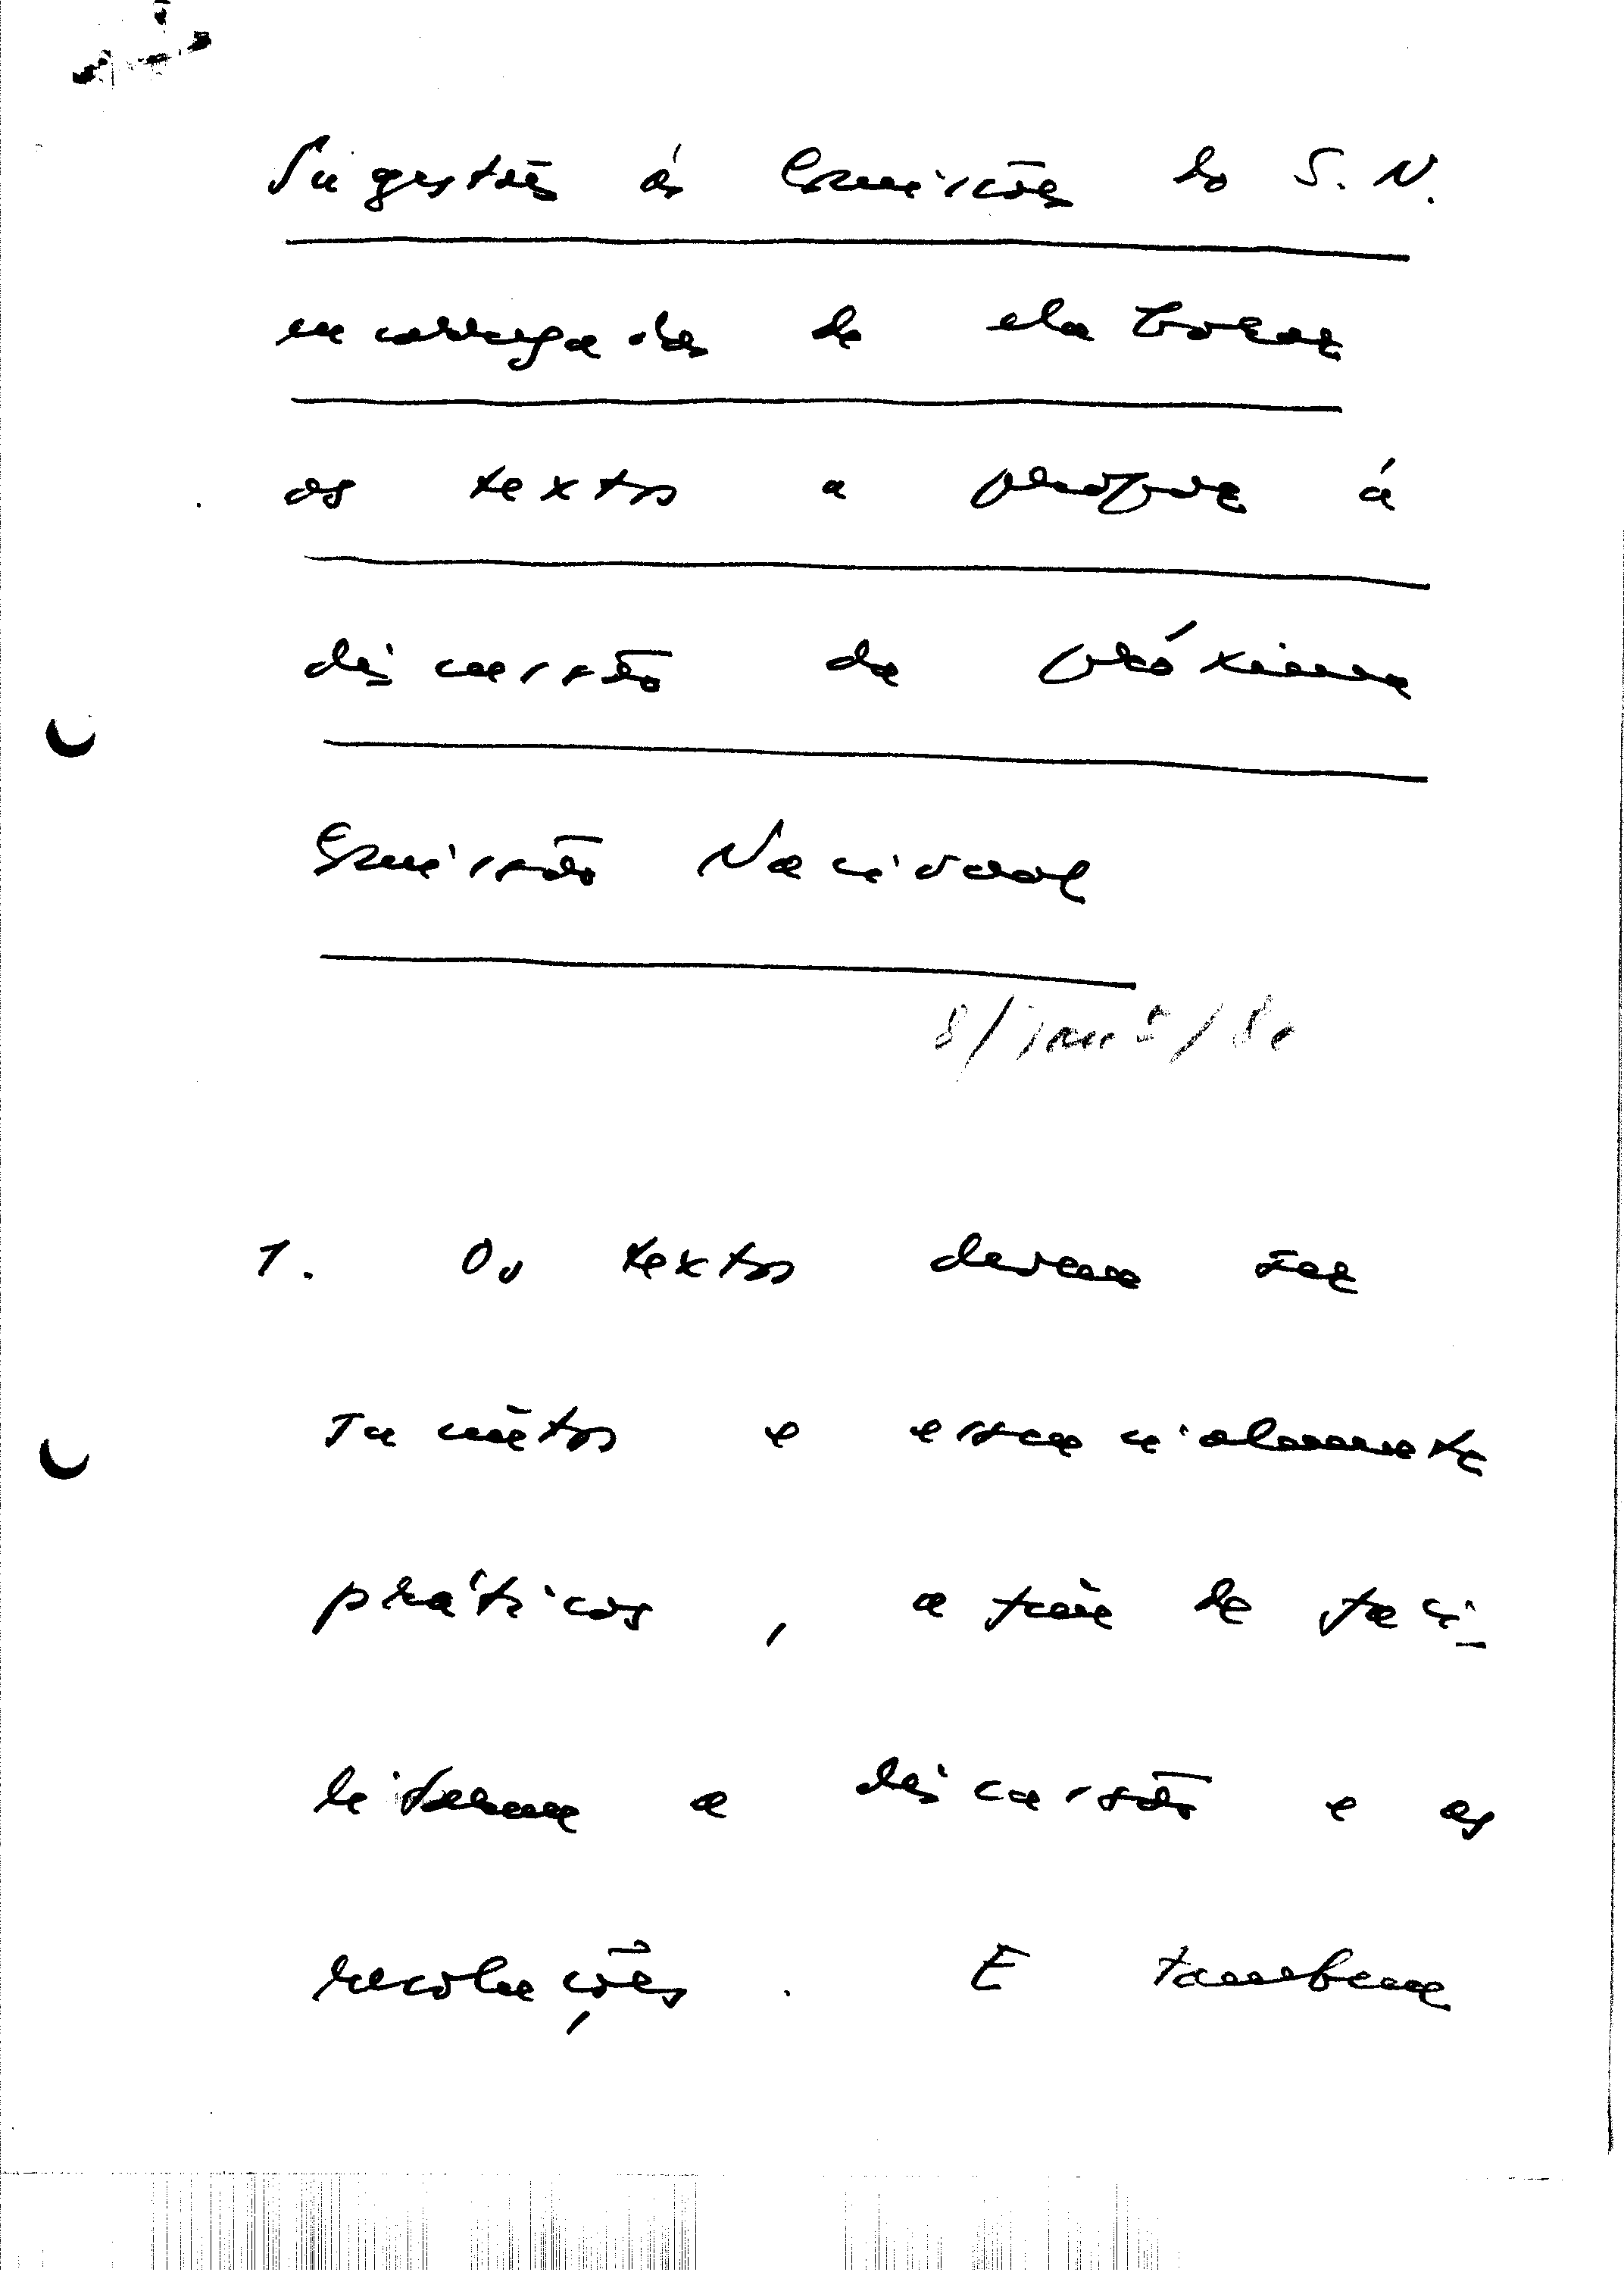 Sugestões às Comissões do S. N.
encarregadas de elaborar
os textos a propor à
discussão da próxima
Comissão Nacional
8/Junº/80
1. Os textos devem ser
sucintos e essencialmente
práticos, a fim de faci-
litarem a discussão e as
resoluções. E tambem